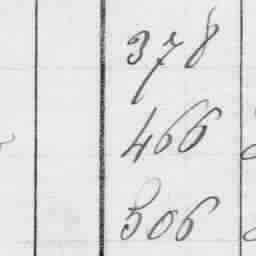 378
466
506